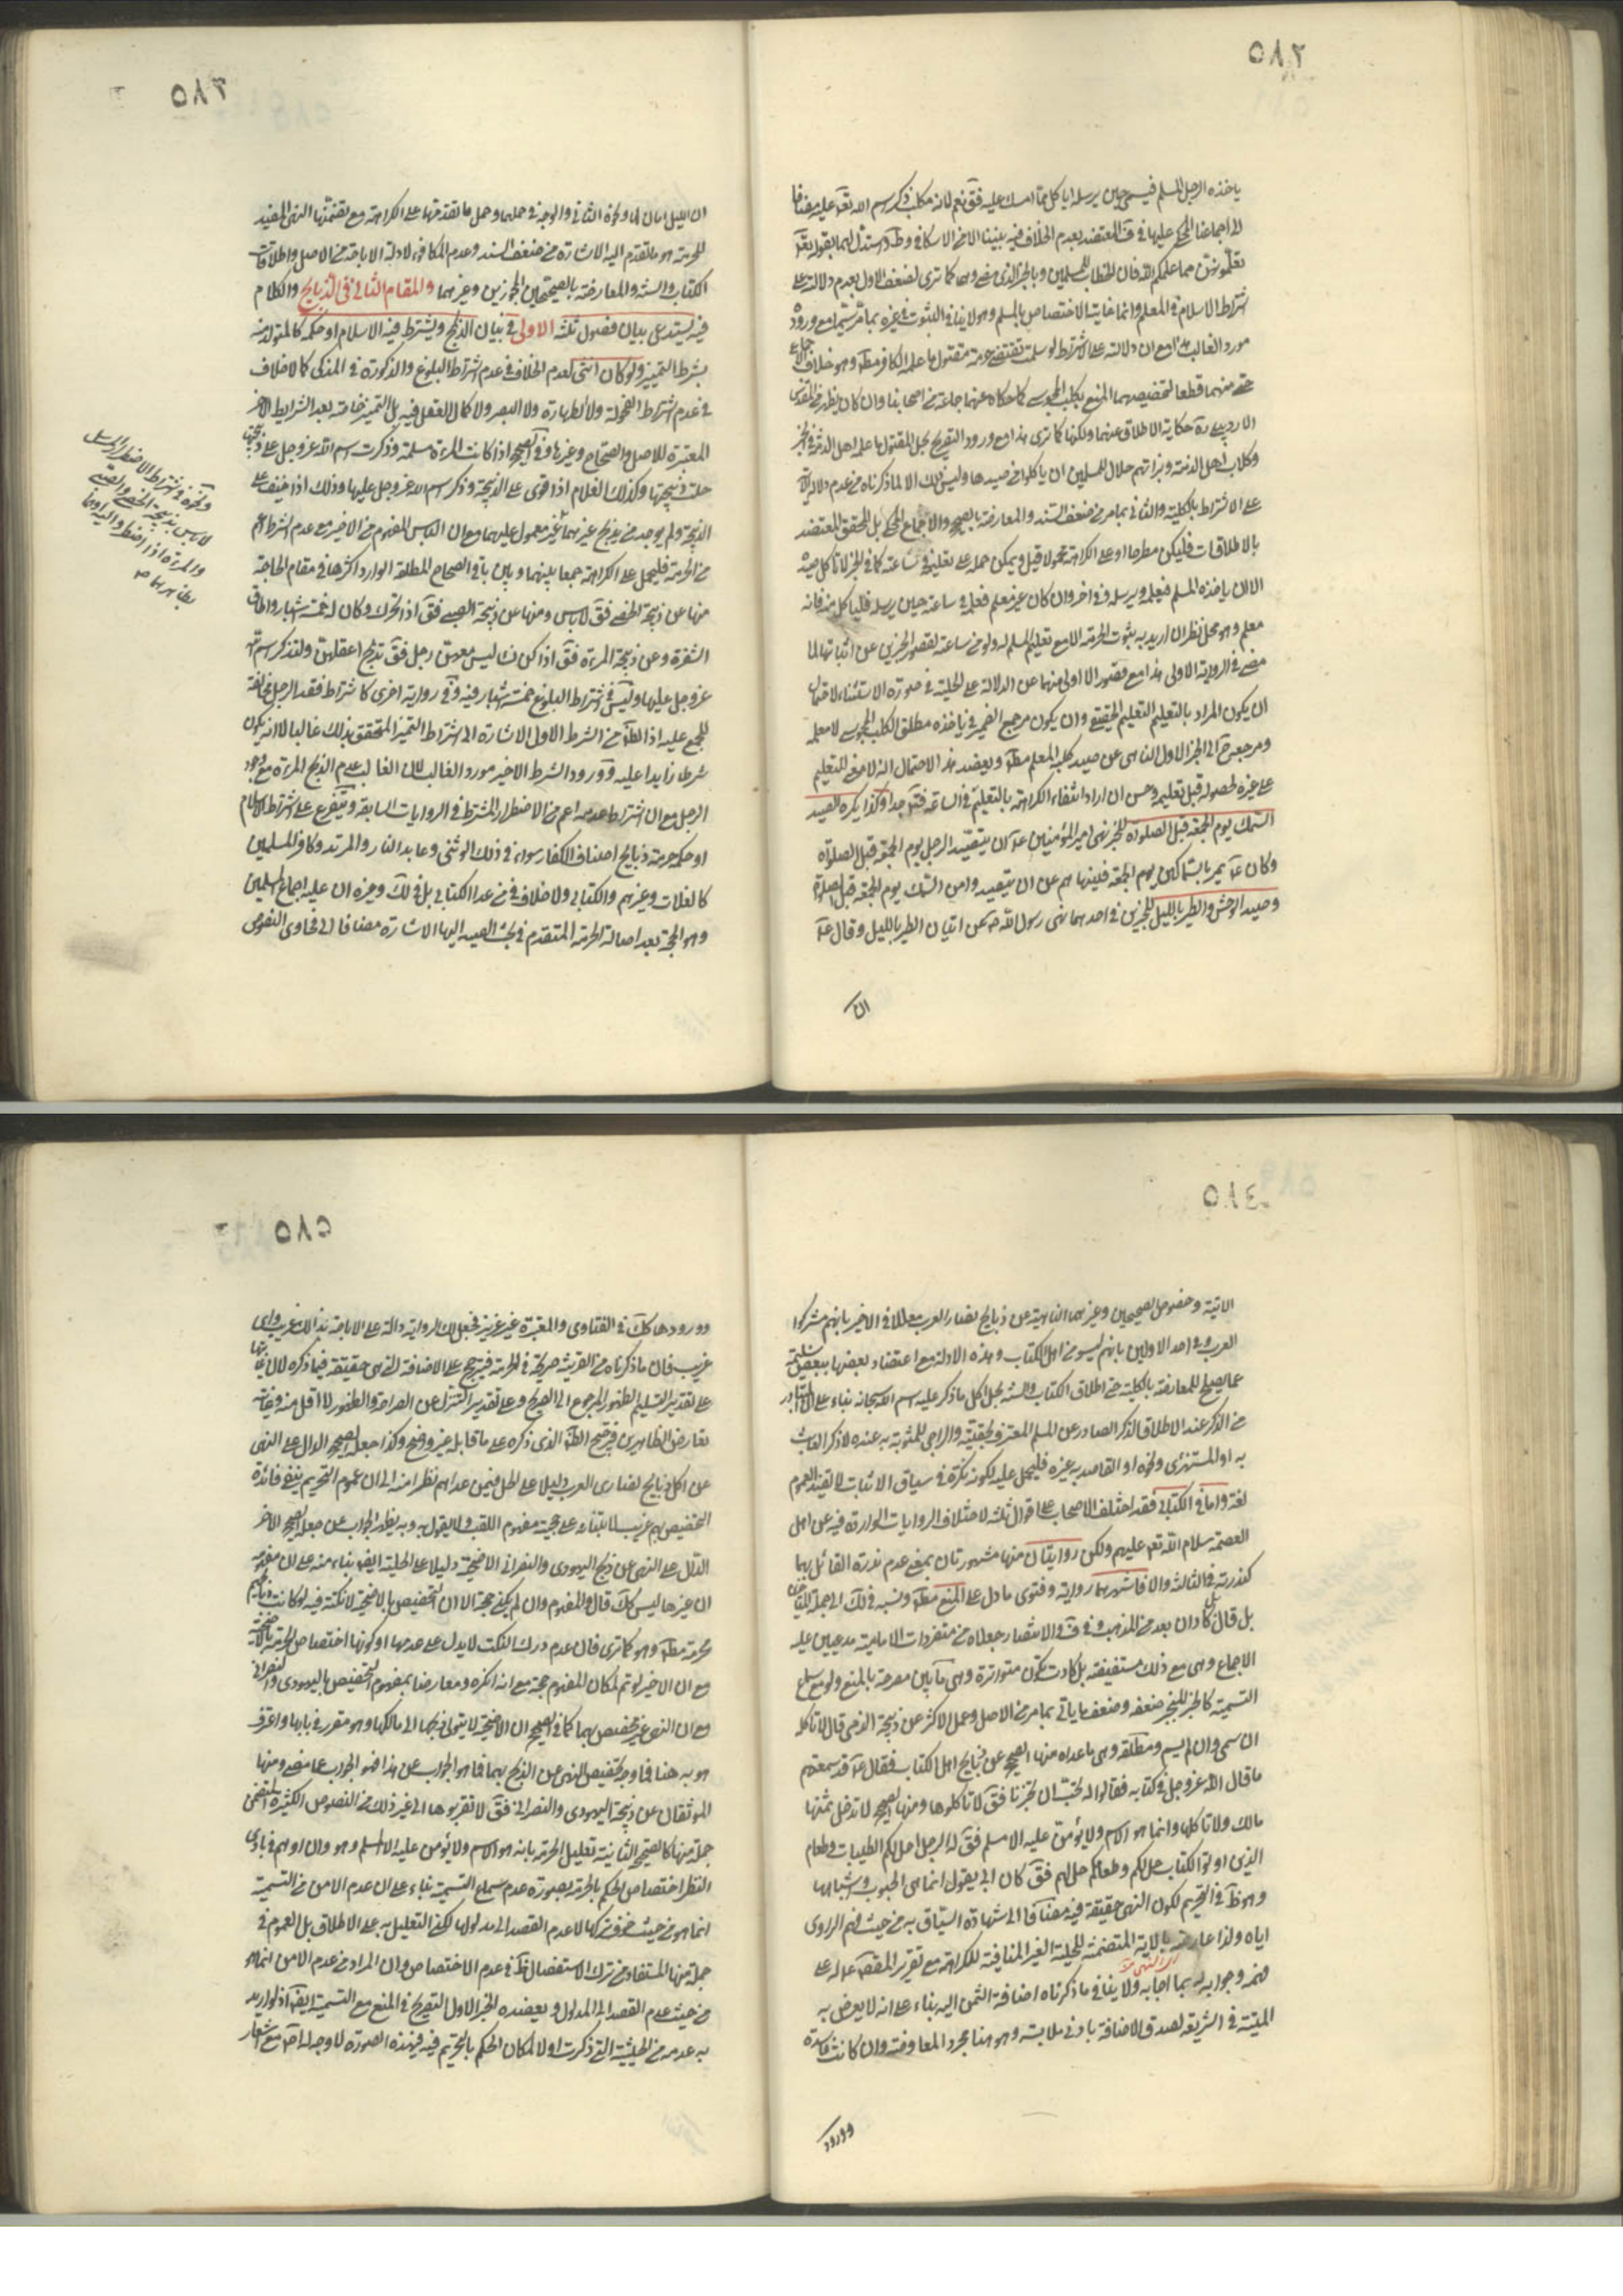 ٥٨٢
ياخذه الرجل المسلم فيسمي حين يرسله ايأكل مما امسك عليه فق نعم لانه مكلب ذكر اسم الله تعه عليه مضافا
الى اجماعنا المحكي عليها في المعتضد بعدم الخلاف فيه بيننا الا من الاسكافي وطـ واستدل لهما بقوله تعه
تعلمونهن مما علمكم الله فان الخطاب للمسلمين وبالخبر الذي مضى وهما كما ترى لضعف الاول بعدم دلالته على
اشتراط الاسلام في المعلم وانما غايته الاختصاص بالمسلم وهو لا ينافي الثبوت في غيره بما مر سيما مع وروده
مورد الغالب هذا مع ان دلالته على الاشتراط لو سلمت تقتضي حرمة مقتول ما علمه الكافر مطـ وهو خلاف الاجماع
حتى منهما قطعا لتخصيصهما المنع بكلب المجوسي كما حكاه عنهما جماعة من اصحابنا وان كان يظهر من المقدس
الاردبيلي ره حكاية الاطلاق عنهما ولكنها كما ترى هذا مع ورود التصريح بحل المقتول ما علمه اهل الذمة في الخبر
وكلاب اهل الذمة وبزاتهم حلال للمسلمين ان ياكلوا من صيدها وليس ذلك الا لما ذكرناه من عدم دلالة الاية
على الاشتراط بالكلية والثاني بما مر من ضعف السند والمعارضة بالصحيح والاجماع المحكي بل المحقق المعتضد
بالاطلاقات فليكن مطرحا او على الكراهة محمولا قيل ويمكن حمله على تعليمه في ساعته كما في الخبر لا تاكل صيده
الا ان ياخذه المسلم فيعلمه ويرسله وفي اخر وان كان غير معلم فعلمه في ساعته حين يرسله فلياكل منه فانه
معلم وهو محل نظر ان اريد به ثبوت الحرمة الا مع تعليم المسلم له ولو من ساعته لقصور الخبرين عن اثباتها لما
مضى في الرواية الاولى هذا مع قصور الاولى منهما عن الدلالة على الحلية في صورة الاستثناء لاحتمال
ان يكون المراد بالتعليم التعليم الحقيقي وان يكون مرجع الضمير في ياخذه مطلق الكلب المجوسي لا معلمه
ومرجعه ح الى الخبر الاول الناهي عن صيد كلبه المعلم مطـ ويعضد هذا الاحتمال انه لا معنى للتعليم
على غيره لحصوله قبل تعليمه وحسن ان اراد انتفاء الكراهة بالتعليم في الساعة فتـ جدا وكذا يكره الصيد
السمك يوم الجمعة قبل الصلوة للخبر نهى امير المؤمنين عـ ان يتصيد الرجل يوم الجمعة قبل الصلوة
وكان عـ يمر بالسماكين يوم الجمعة فينهاهم عن ان يتصيدوا من السمك يوم الجمعة قبل الصلوة
وصيد الوحش والطير بالليل للخبرين في احدهما نهى رسول الله ص عن اتيان الطير بالليل وقال عـ
ان
٥٨٣
ان الليل امان لها ونحوه الثاني والوجه في حملهما وحمل ما تقدمهما على الكراهة مع تضمنها النهي المفيد
للحرمة هو ما تقدم اليه الاشارة من ضعف السند وعدم المكافوة لادلة الاباحة من الاصل واطلاقات
الكتاب والسنة والمعارضة بالصحيحين المجوزين وغيرهما والمقام الثاني في الذبايح والكلام
فيه يستدعي بيان فصول ثلثة الاولى في بيان الذابح ويشترط فيه الاسلام او حكمه كالمتولد منه
بشرط التمييز ولو كان انثى لعدم الخلاف في عدم اشتراط البلوغ والذكورة في المذكى كما لا خلاف
في عدم اشتراط الفحولة ولا الطهارة ولا البصر ولا كمال العقل فيه بل التميز خاصة بعد الشرايط الاخر
المعتبرة للاصل والصحاح وغيرها وفي الصحيح اذا كانت المرءة مسلمة وذكرت اسم الله عز وجل على ذبيحتها
حلت ذبيحتها وكذلك الغلام اذا قوي على الذبيحة وذكر اسم الله عز وجل عليها وذلك اذا خيف على
الذبيحة ولم يوجد من يذبح غيرهما غير معمول عليهما مع ان الباس المفهوم من الاخير مع عدم الشرط اعم
من الحرمة فليحمل على الكراهة جمعا بينهما وبين باقي الصحاح المطلقة الوارد اكثرها في مقام الحاجة
منها عن ذبيحة الخصي فق لا باس ومنها عن ذبيحة الصبي فق اذا تحرك وكان له خمسة اشبار واطاق
الشفرة وعن ذبيحة المرءة فق اذا كن نساء ليس معهن رجل فق تذبح اعقلهن ولتذكر اسم الله
عز وجل عليها وليس في اشتراط البلوغ خمسة اشبار فيه وفي رواية اخرى كاشتراط فقد الرجل مخالفة
للمجمع عليه اذ الظـ من الشرط الاول الاشارة الى اشتراط التميز المتحقق بذلك غالبا لا انه يكون
شرطا زايدا عليه وورود الشرط الاخير مورد الغالب اذ الغالب عدم الذبح المرءة مع وجود
الرجل مع ان اشتراط عدمه اعم من الاضطرار المشترط في الروايات السابقة ويتفرع على اشتراط الاسلام
او حكمه حرمة ذبايح اصناف الكفار سواء في ذلك الوثني وعابد النار والمرتد وكافر المسلمين
كالغلات وغيرهم والكتابي ولا خلاف في من عدا الكتابي بل في لك وغيره ان عليه اجماع المسلمين
وهو الحجة بعد اصالة الحرمة المتقدم في بحث الصيد اليها الاشارة مضافا الى فحاوى النصوص
ونحوه في اشتراط الاضطرار المرسل
لا باس بذبيحة الخصي والصبي
والمرءة اذا اضطروا اليه
٥٨٤
الاتية وخصوص الصحيحين وغيرهما الناهية عن ذبايح نصارى العرب معللا في الاخير بانهم مشركوا
العرب وفي احد الاولين بانهم ليسوا من اهل الكتاب وهذه الادلة مع اعتضاد بعضها ببعض سليمة
عما يصلح للمعارضة بالكلية حتى اطلاق الكتاب والسنة بحل اكل ما ذكر عليه اسم الله سبحانه بناء على ان المتبادر
من الذكر عند الاطلاق الذكر الصادر عن المسلم المعترف بحقيته والراجي للمثوبة به عنده لا ذكر العابث
به او المستهزئ ونحوه او القاصد به غيره فليحمل عليه لكونه نكرة في سياق الاثبات لا تفيد العموم
لغة واما في الكتابي فقد اختلف الاصحاب على اقوال ثلثة لاختلاف الروايات الواردة فيه عن اهل
العصمة سلام الله تعه عليهم ولكن روايتان منها مشهورتان بمعنى عدم ندرة القائل بهما
كندرته في الثالثة والا فاشهرهما رواية وفتوى ما دل على المنع مطـ ونسبه في لك الى جملة
بل قال كاد ان يعد من المذهب وفي والانتصار جعلاه من متفردات الامامية مدعيين عليه
الاجماع وهي مع ذلك مستفيضة بل كادت تكون متواترة وهي ما بين مصرحة بالمنع ولو مع سماع
التسمية كالخبر المنجبر ضعفه وضعف ما ياتي بما مر من الاصل وعمل الاكثر عن ذبيحة الذمي قال لا تاكله
ان سمى وان لم يسم ومطلقة وهي ما عداه منها الصحيح عن ذبايح اهل الكتاب فقال عـ قد سمعتم
ما قال الله عز وجل في كتابه فقالوا له نحب ان تخبرنا فق لا تاكلوها ومنها الصحيح لا تدخل ثمنها
مالك ولا تاكلها وانما هو الاسم ولا يؤمن عليه الا مسلم فق له الرجل احل لكم الطيبات وطعام
الذين اوتوا الكتاب حل لكم وطعامكم حل لهم فق كان ابي يقول انما هي الحبوب واشباهها
وهو ظـ في التحريم لكون النهي حقيقة فيه مضافا الى شهادة السياق به من حيث فهم الراوي
اياه ولذا عارضه بالاية المتضمنة للحلية الغير المنافية للكراهة مع تقرير المعصوم عـ له على
فهمه وجوابه له بما اجابه ولا ينافي ما ذكرناه اضافة الثمن اليه بناء على انه لا يعوض به
الميتة في الشريعة لصدق الاضافة بادنى ملابسة وهو هنا مجرد المعاوضة وان كانت فاسدة
وورود
٥٨٥
وورودها كك في الفتاوى والمعتبرة غير عزيز فجعل تلك الرواية دالة على الاباحة بذلك غريب واي
غريب فان ما ذكرناه من القرينة صريحة في الحرمة فيترجح على الاضافة التي هي حقيقة فيما ذكره لان غايتها
على تقدير التسليم الظهور المرجوع الى الصريح وعلى تقدير التنزل عن الصراحة والظهور لا اقل منه وغايته
تعارض الظاهرين فترجيح الظـ الذي ذكره على ما قابله غير واضح وكذا جعل الصحيح الدال على النهي
عن اكل ذبايح نصارى العرب دليلا على الحل فيمن عداهم نظرا منه الى ان عموم التحريم ينفي فائدة
التخصيص بهم غريب لابتنائه على حجية مفهوم اللقب ولا يقول به وبه يظهر الجواب عن جعله الصحيح الاخر
الدال على النهي عن ذبح اليهودي والنصراني الاضحية دليلا على الحلية ايضا بناء منه على ان مفهومه
ان غيرها ليس كك قال والمفهوم وان لم يكن حجة الا ان التخصيص بالاضحية لا نكتة فيه لو كانت ذبايحهم
محرمة مطـ وهو كما ترى فان عدم درك النكت لا يدل على عدمها او كونها اختصاص الحرمة بالاضحية
مع ان الاخير لو تم لمكان المفهوم حجة مع انه انكره ومعارضا بمفهوم التخصيص باليهودي والنصراني
مع ان النهي غير مختص بهما كما في الصحيح ان الاضحية لا يتولى ذبحها الا مالكها وهو مقرر في بابها واعترف
هو به هنا فما وجه تخصيص النهي عن الذبح بهما فما هو الجواب عن هذا فهو الجواب عما مضى ومنها
الموثقان عن ذبيحة اليهودي والنصراني فق لا تقربوها الى غير ذلك من النصوص الكثيرة المتضمن
جملة منها كالصحيح الثانية تعليل الحرمة بانه هو الاسم ولا يؤمن عليه الا المسلم وهو وان اوهم في بادي
النظر اختصاص الحكم بالحرمة بصورة عدم سماع التسمية بناء على ان عدم الامن من التسمية
انما هو من حيث خوف تركها لا عدم القصد الى مدلولها لكن التعليل به على الاطلاق بل العموم في
جملة منها المستفاد من ترك الاستفصال ظـ في عدم الاختصاص وان المراد من عدم الامن انما هو
من حيث عدم القصد الى المدلول ويعضده الخبر الاول الصريح في المنع مع التسمية ايضا اذ لو اريد
به عدمه من الحيثية التي ذكرت اولا لمكان الحكم بالتحريم فيه في هذه الصورة لا وجه له مع اشعار